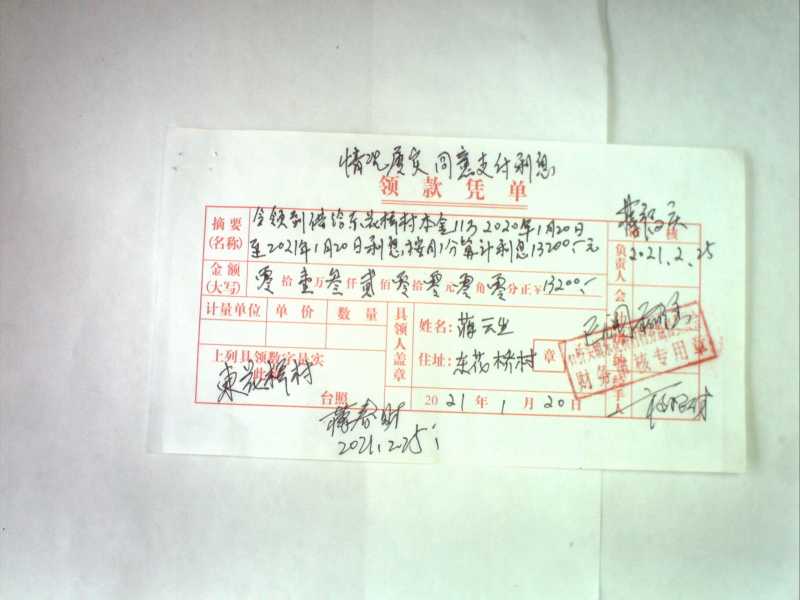 情况属实 同意支付利息
领款凭单
摘要
(名称)
今领到借给东花桥村本金11万 2020年1月20日
至2021年1月20日利息,按月1分算计利息13200.-元
核
负责人
2021.2.25
金额
(大写)
零拾壹万叁仟贰佰零拾零元零角零分正¥13200.-
会
计量单位 单价 数量
具领人盖章
姓名: 蒋云生
住址: 东花桥村
章
上列具领数字是实
此
東花桥村
台照
2021年1月20日
财务审核专用章
手人
蒋春财
2021.2.25